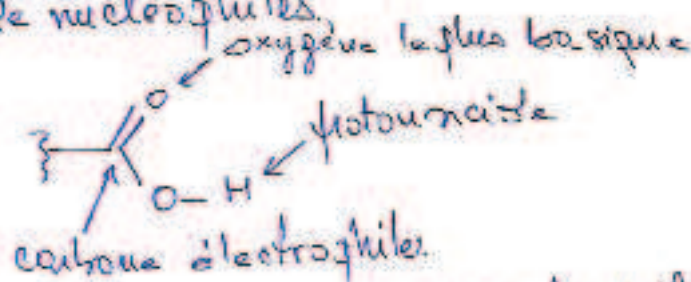 le nucléophiles.
oxygène le plus basique
O
proton acide
O–H
carbone électrophiles